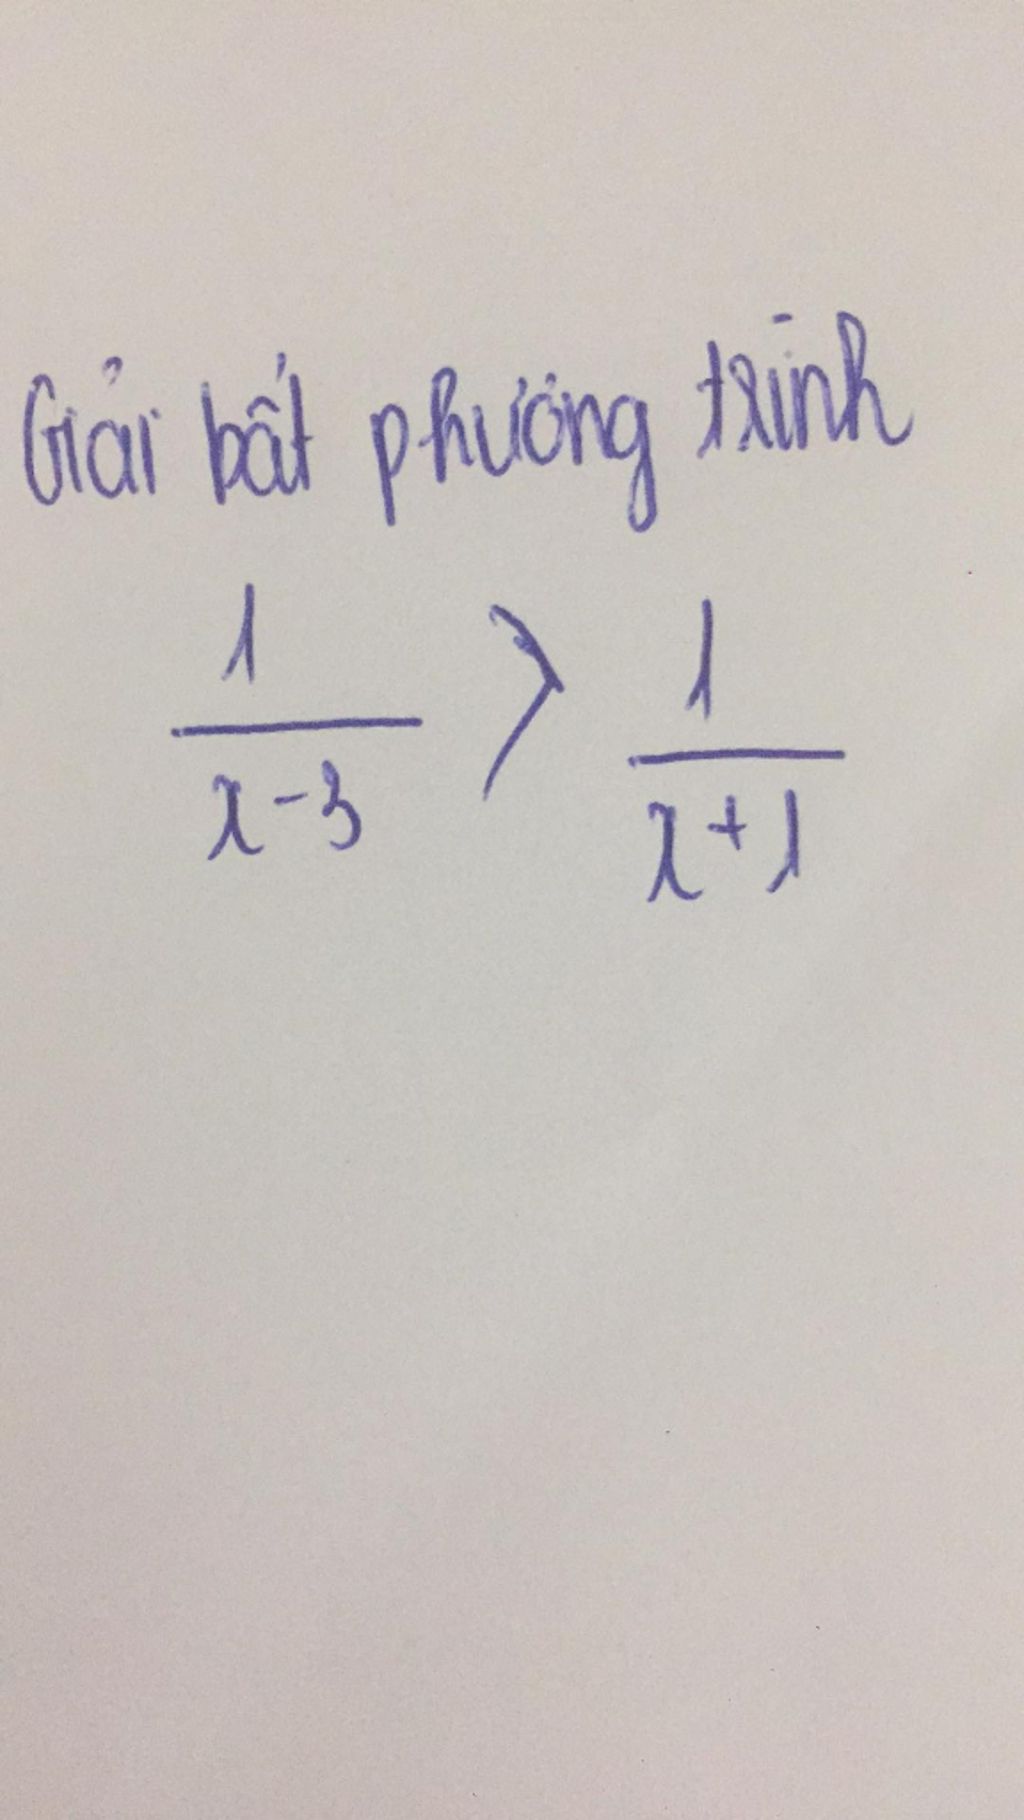 Giải bất phương trình
1/(x-3) > 1/(x+1)